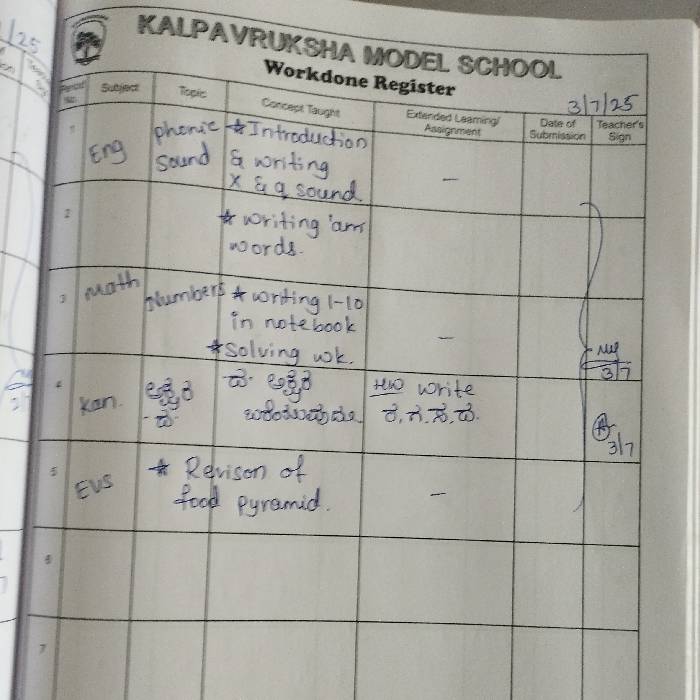 KALPAVRUKSHA MODEL SCHOOL
Workdone Register
3/7/25
Period No. Subject Topic Concept Taught Extended Learning/ Assignment Date of Submission Teacher's Sign
1 Eng phonic sound * Introduction
& writing
x & q sound. –
2 * writing 'am
words.
3 Math Numbers * writing 1-10
in notebook
* Solving wk. –
3/7
4 Kan. ಅಕ್ಷರ
- ದ. ದ. ಅಕ್ಷರ
ಬರೆಯುವುದು HW write
ರ, ಗ, ಸ, ದ.
3/7
5 EVS * Revison of
food pyramid. –
6
7
/25